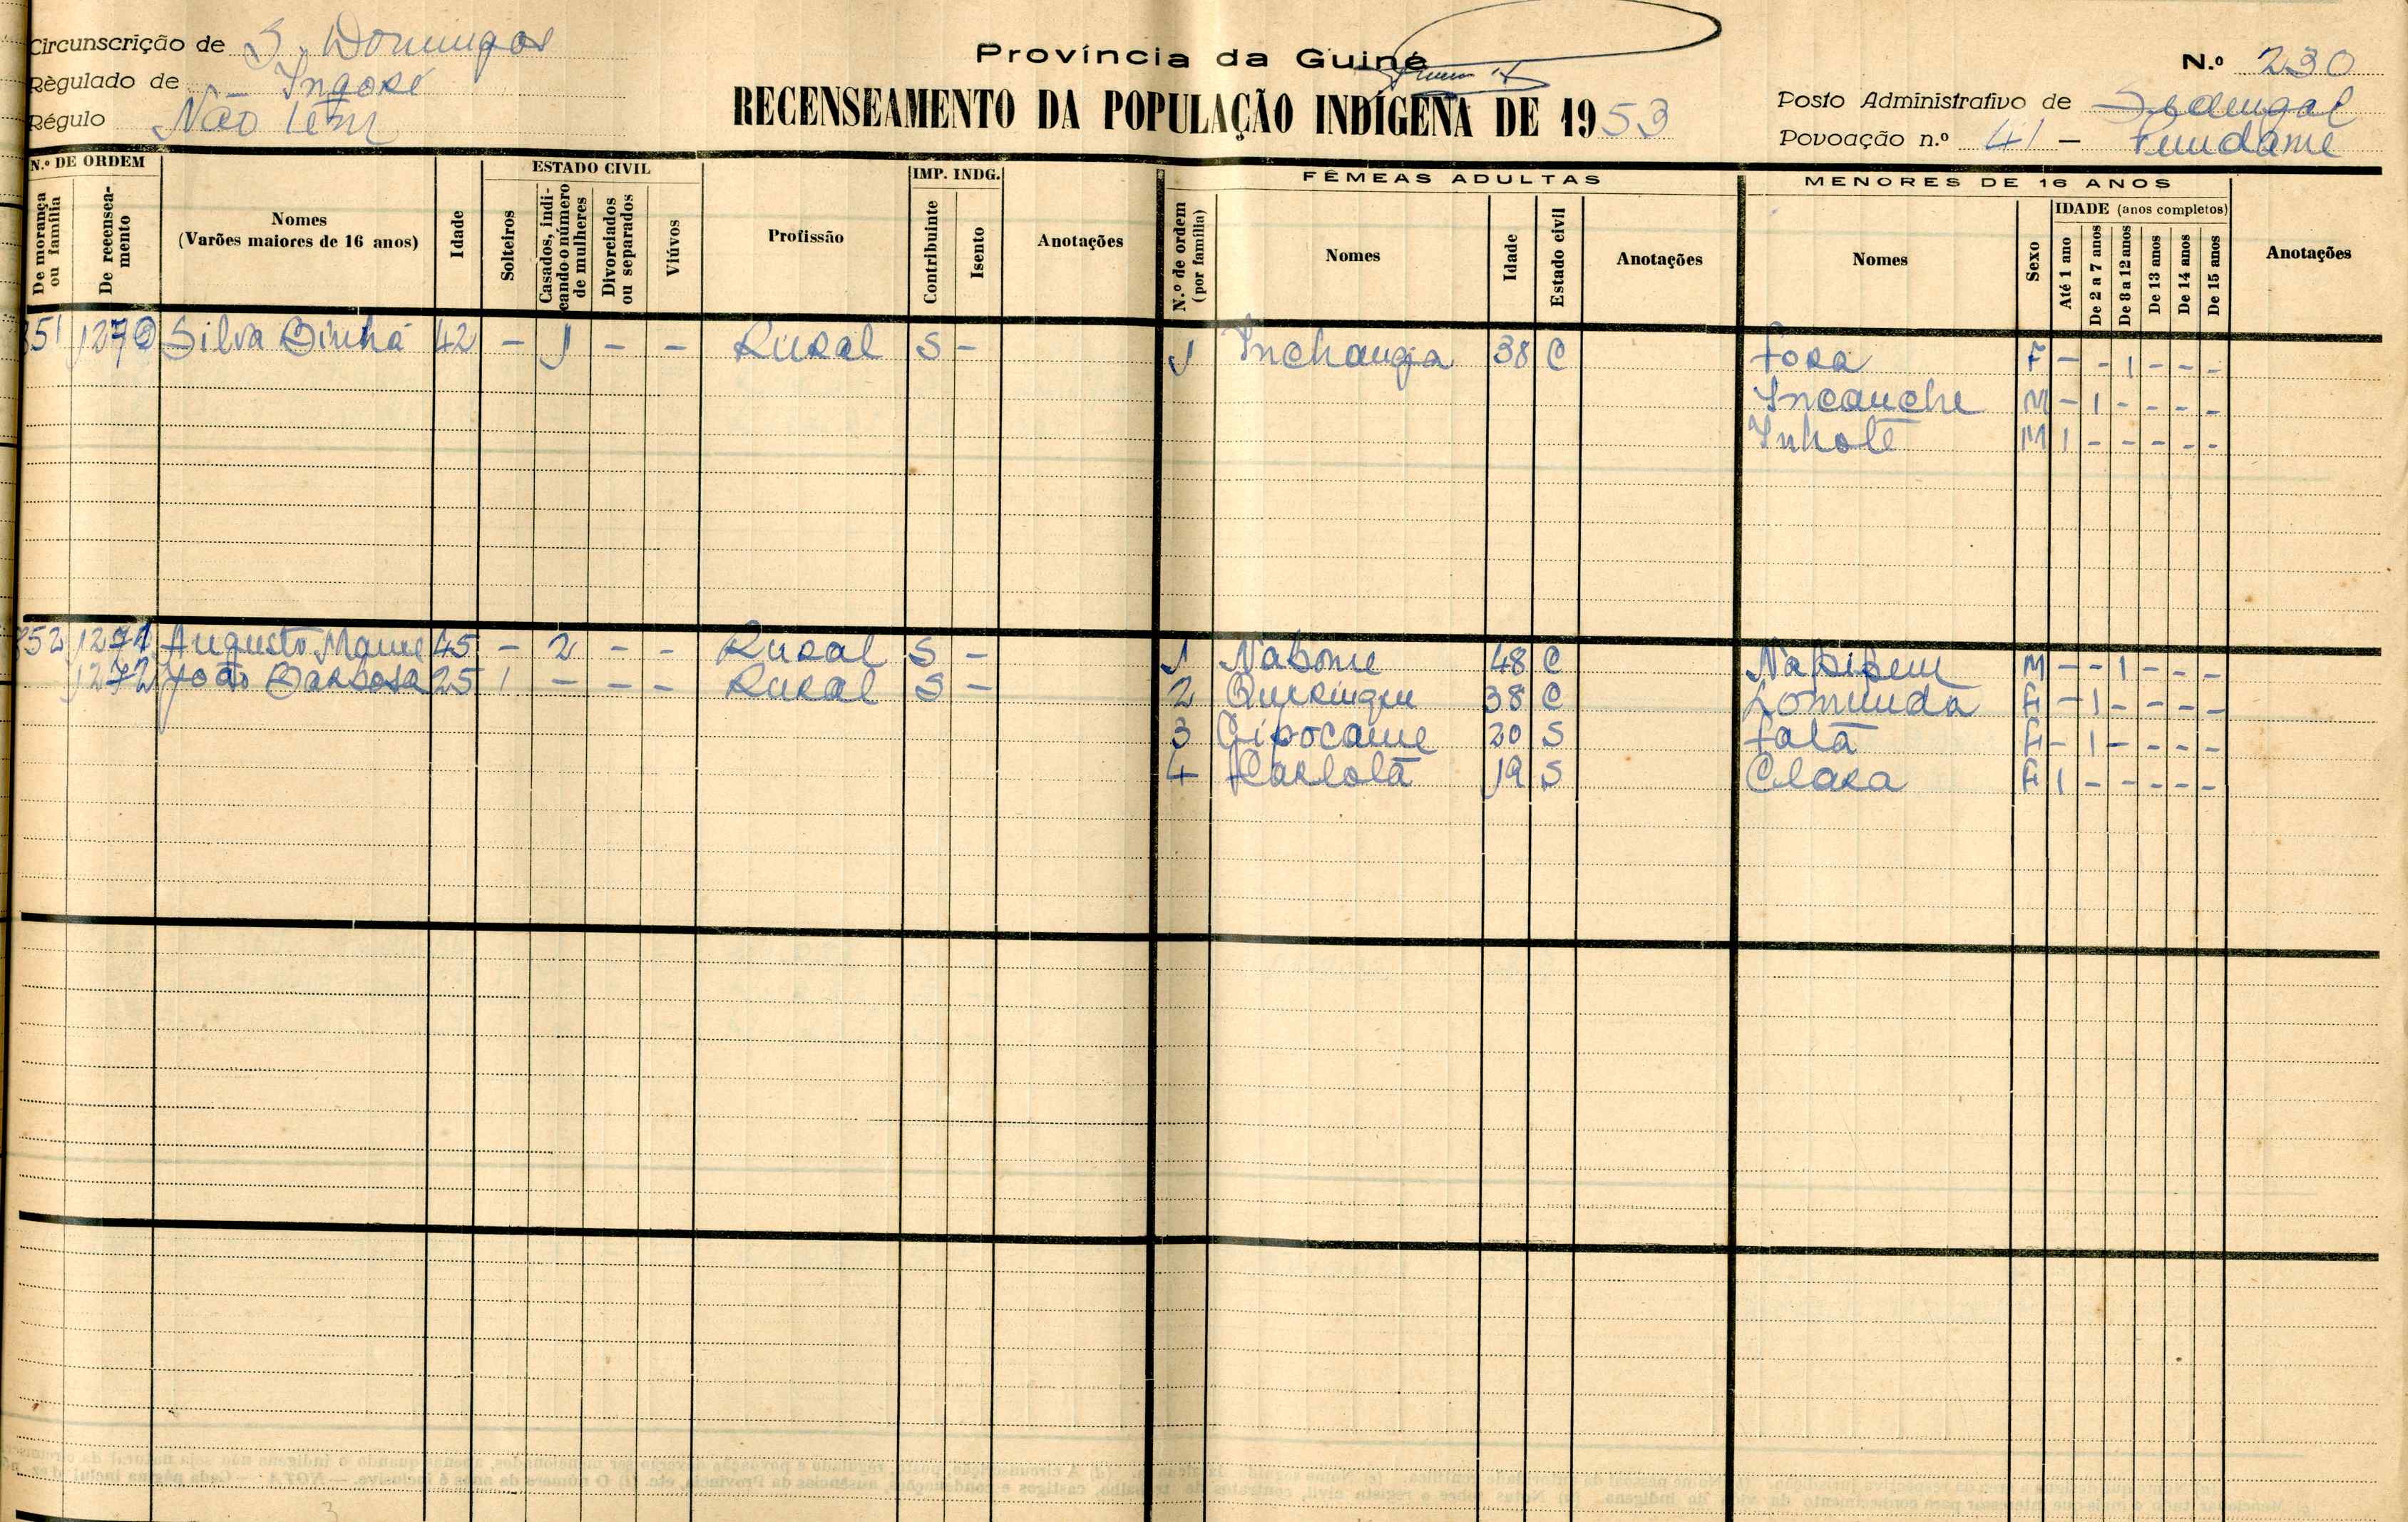 Circunscrição de S. Domingos
Régulado de Ingoré
Régulo Não tem
Província da Guiné
RECENSEAMENTO DA POPULAÇÃO INDÍGENA DE 1953
N.º 230
Posto Administrativo de Sedengal
Povoação n.º 41 -
N.º DE ORDEM
De morança ou família
De recenseamento
Nomes
(Varões maiores de 16 anos)
Idade
ESTADO CIVIL
Solteiros
Casados, indicando o número de mulheres
Divorciados ou separados
Viúvos
Profissão
IMP. INDG.
Contribuinte
Isento
Anotações
FÊMEAS ADULTAS
N.º de ordem (por família)
Nomes
Idade
Estado civil
Anotações
MENORES DE 16 ANOS
Nomes
Sexo
IDADE (anos completos)
Até 1 ano
De 2 a 7 anos
De 8 a 12 anos
De 13 anos
De 14 anos
De 15 anos
Anotações
351 1270 Silva Binhã 42 - 1 - - Rural S - 1 Inchanga 38 C Fora F - - 1 - - -
Incanche M - 1 - - - -
Inhote M 1 - - - - -
352 1271 Augusto Mane 45 - 2 - - Rural S - 1 Nabome 48 C M - - 1 - - -
1272 João Barbosa 25 1 - - - Rural S - 2 Queringue 38 C Lomunda F - 1 - - - -
3 Gipocame 20 S Fatã F - 1 - - - -
4 Carlota 19 S Clara F 1 - - - - -